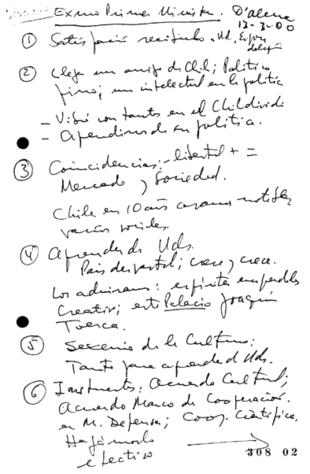 Exmo Primer Ministro. D'Alema
13-3-00
① Satisfacción recibirlo a Ud, Esposa
delegación
② Clejo un amigo de Chile; Político
fino; un intelectual en la política
– Vivió con tantos en el Chile
– Aprendimos de su política.
③ Coincidencias: – libertad + =
Mercado y Sociedad.
Chile en 10 años avances notables
varios
④ Aprender de Uds.
País; crece y crea.
Los admiramos: espíritu
Creativo; este Palacio Joaquín
Toesca.
⑤ de la Cultura:
Tanto para aprender de Uds.
⑥ Instrumentos: Acuerdo Cultural;
Acuerdo Marco de Cooperación.
en M. Defensa; Coop. Científica.
Hagámoslo
efectivo
308 02